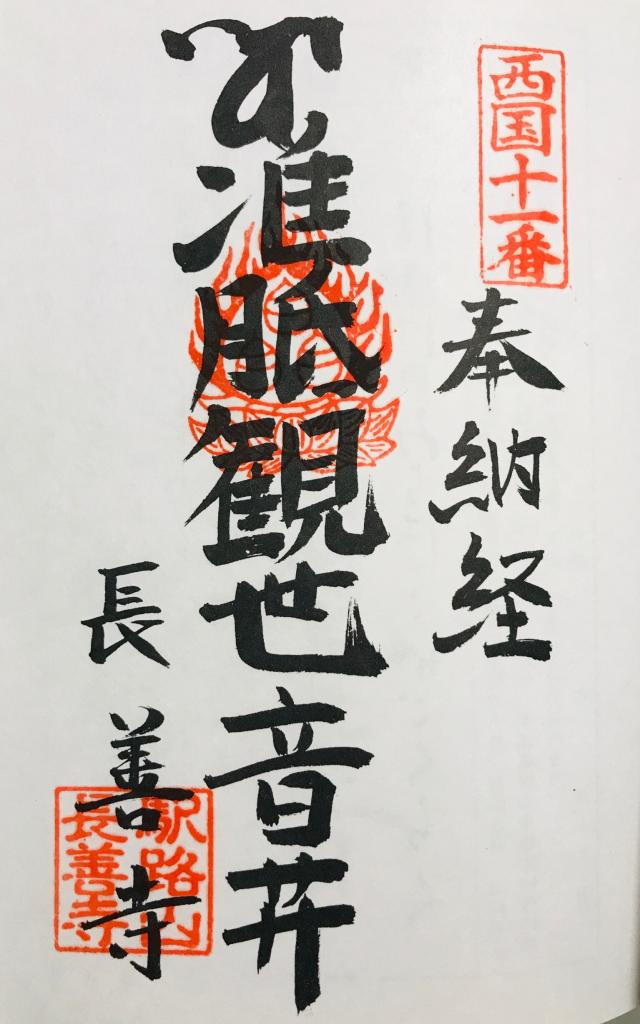 西国十一番
奉納経
准胝観世音𦬇
長善寺
駅路山
長善寺